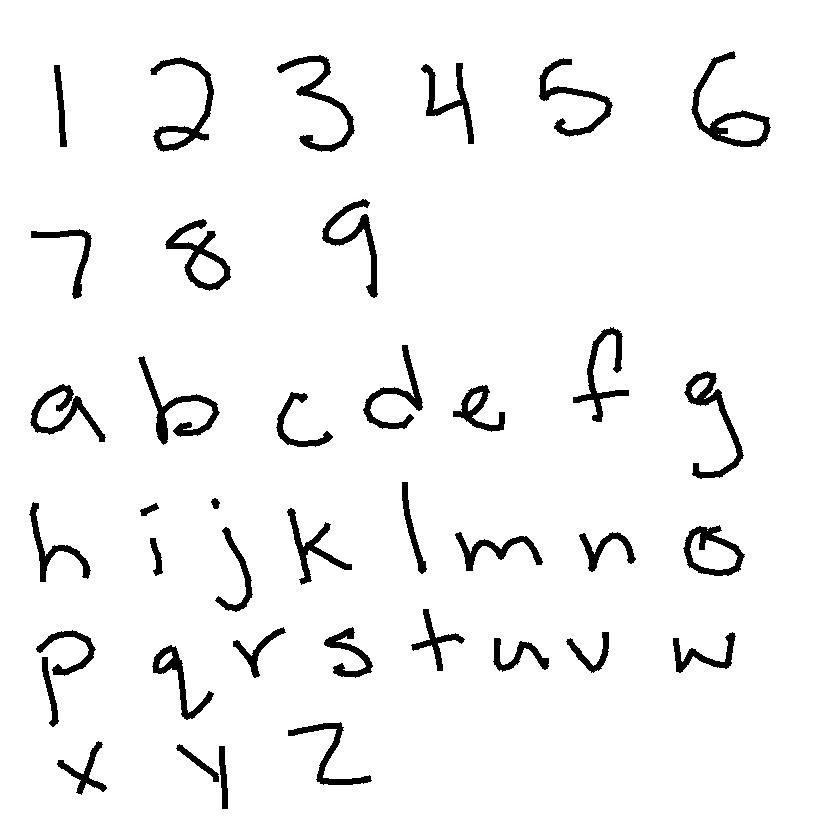 1 2 3 4 5 6
7 8 9
a b c d e f g
h i j k l m n o
p q r s t u v w
x y z